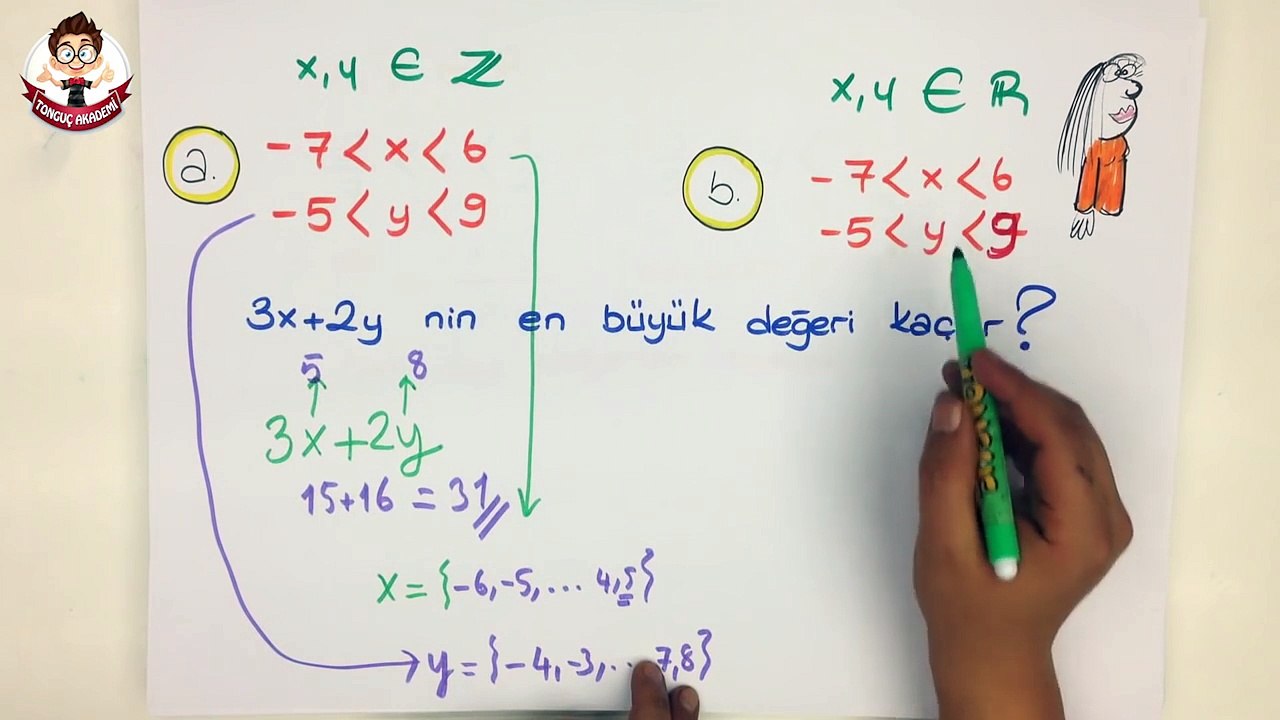 TONGUÇ AKADEMİ
x, y ∈ ℤ
a.
-7 < x < 6
-5 < y < 9
x, y ∈ ℝ
b.
-7 < x < 6
-5 < y < 9
3x+2y nin en büyük değeri ?
5 8
3x+2y
15+16 = 31
x = {-6, -5, ... 4, 5}
y = {-4, -3, ... 7, 8}